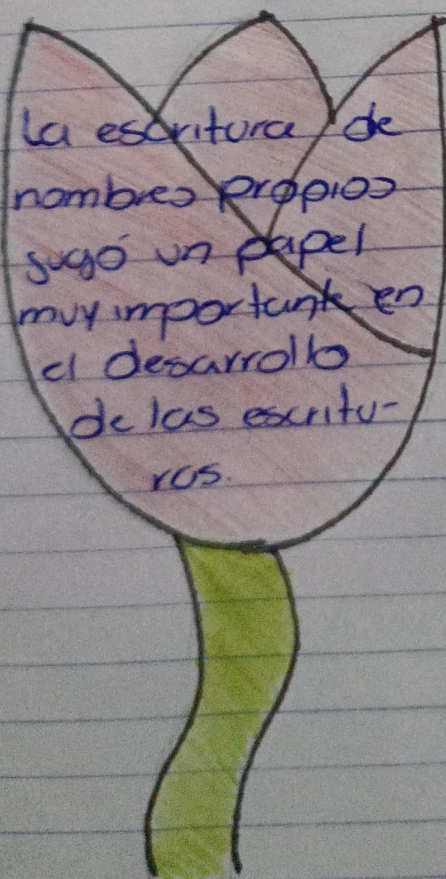 La escritura de
nombres propios
jugó un papel
muy importante en
el desarrollo
de las escritu-
ras.